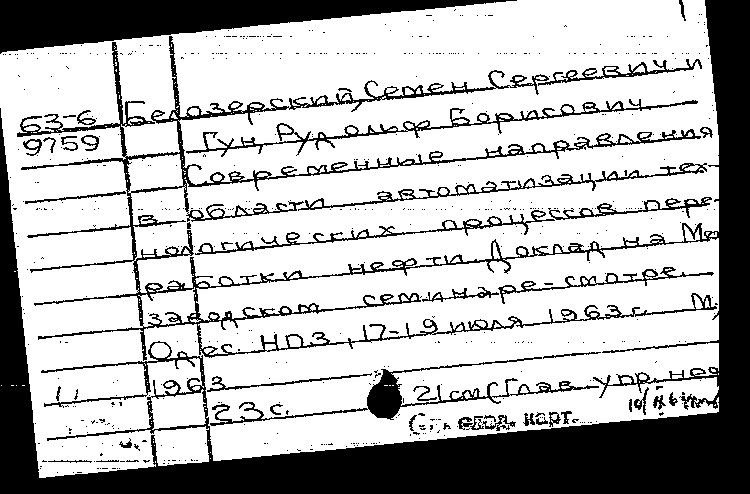 63-6 Белозерский, Семен Сергеевич и
9759 Гун, Рудольф Борисович
Современные направления
в области автоматизации тех-
нологических процессов пере-
работки нефти. Доклад на Меж
заводском семинаре-смотре.
Одес. НПЗ, 17-19 июля 1963г. М,
1963
23 с. 21 см (Глав. упр.
карт.